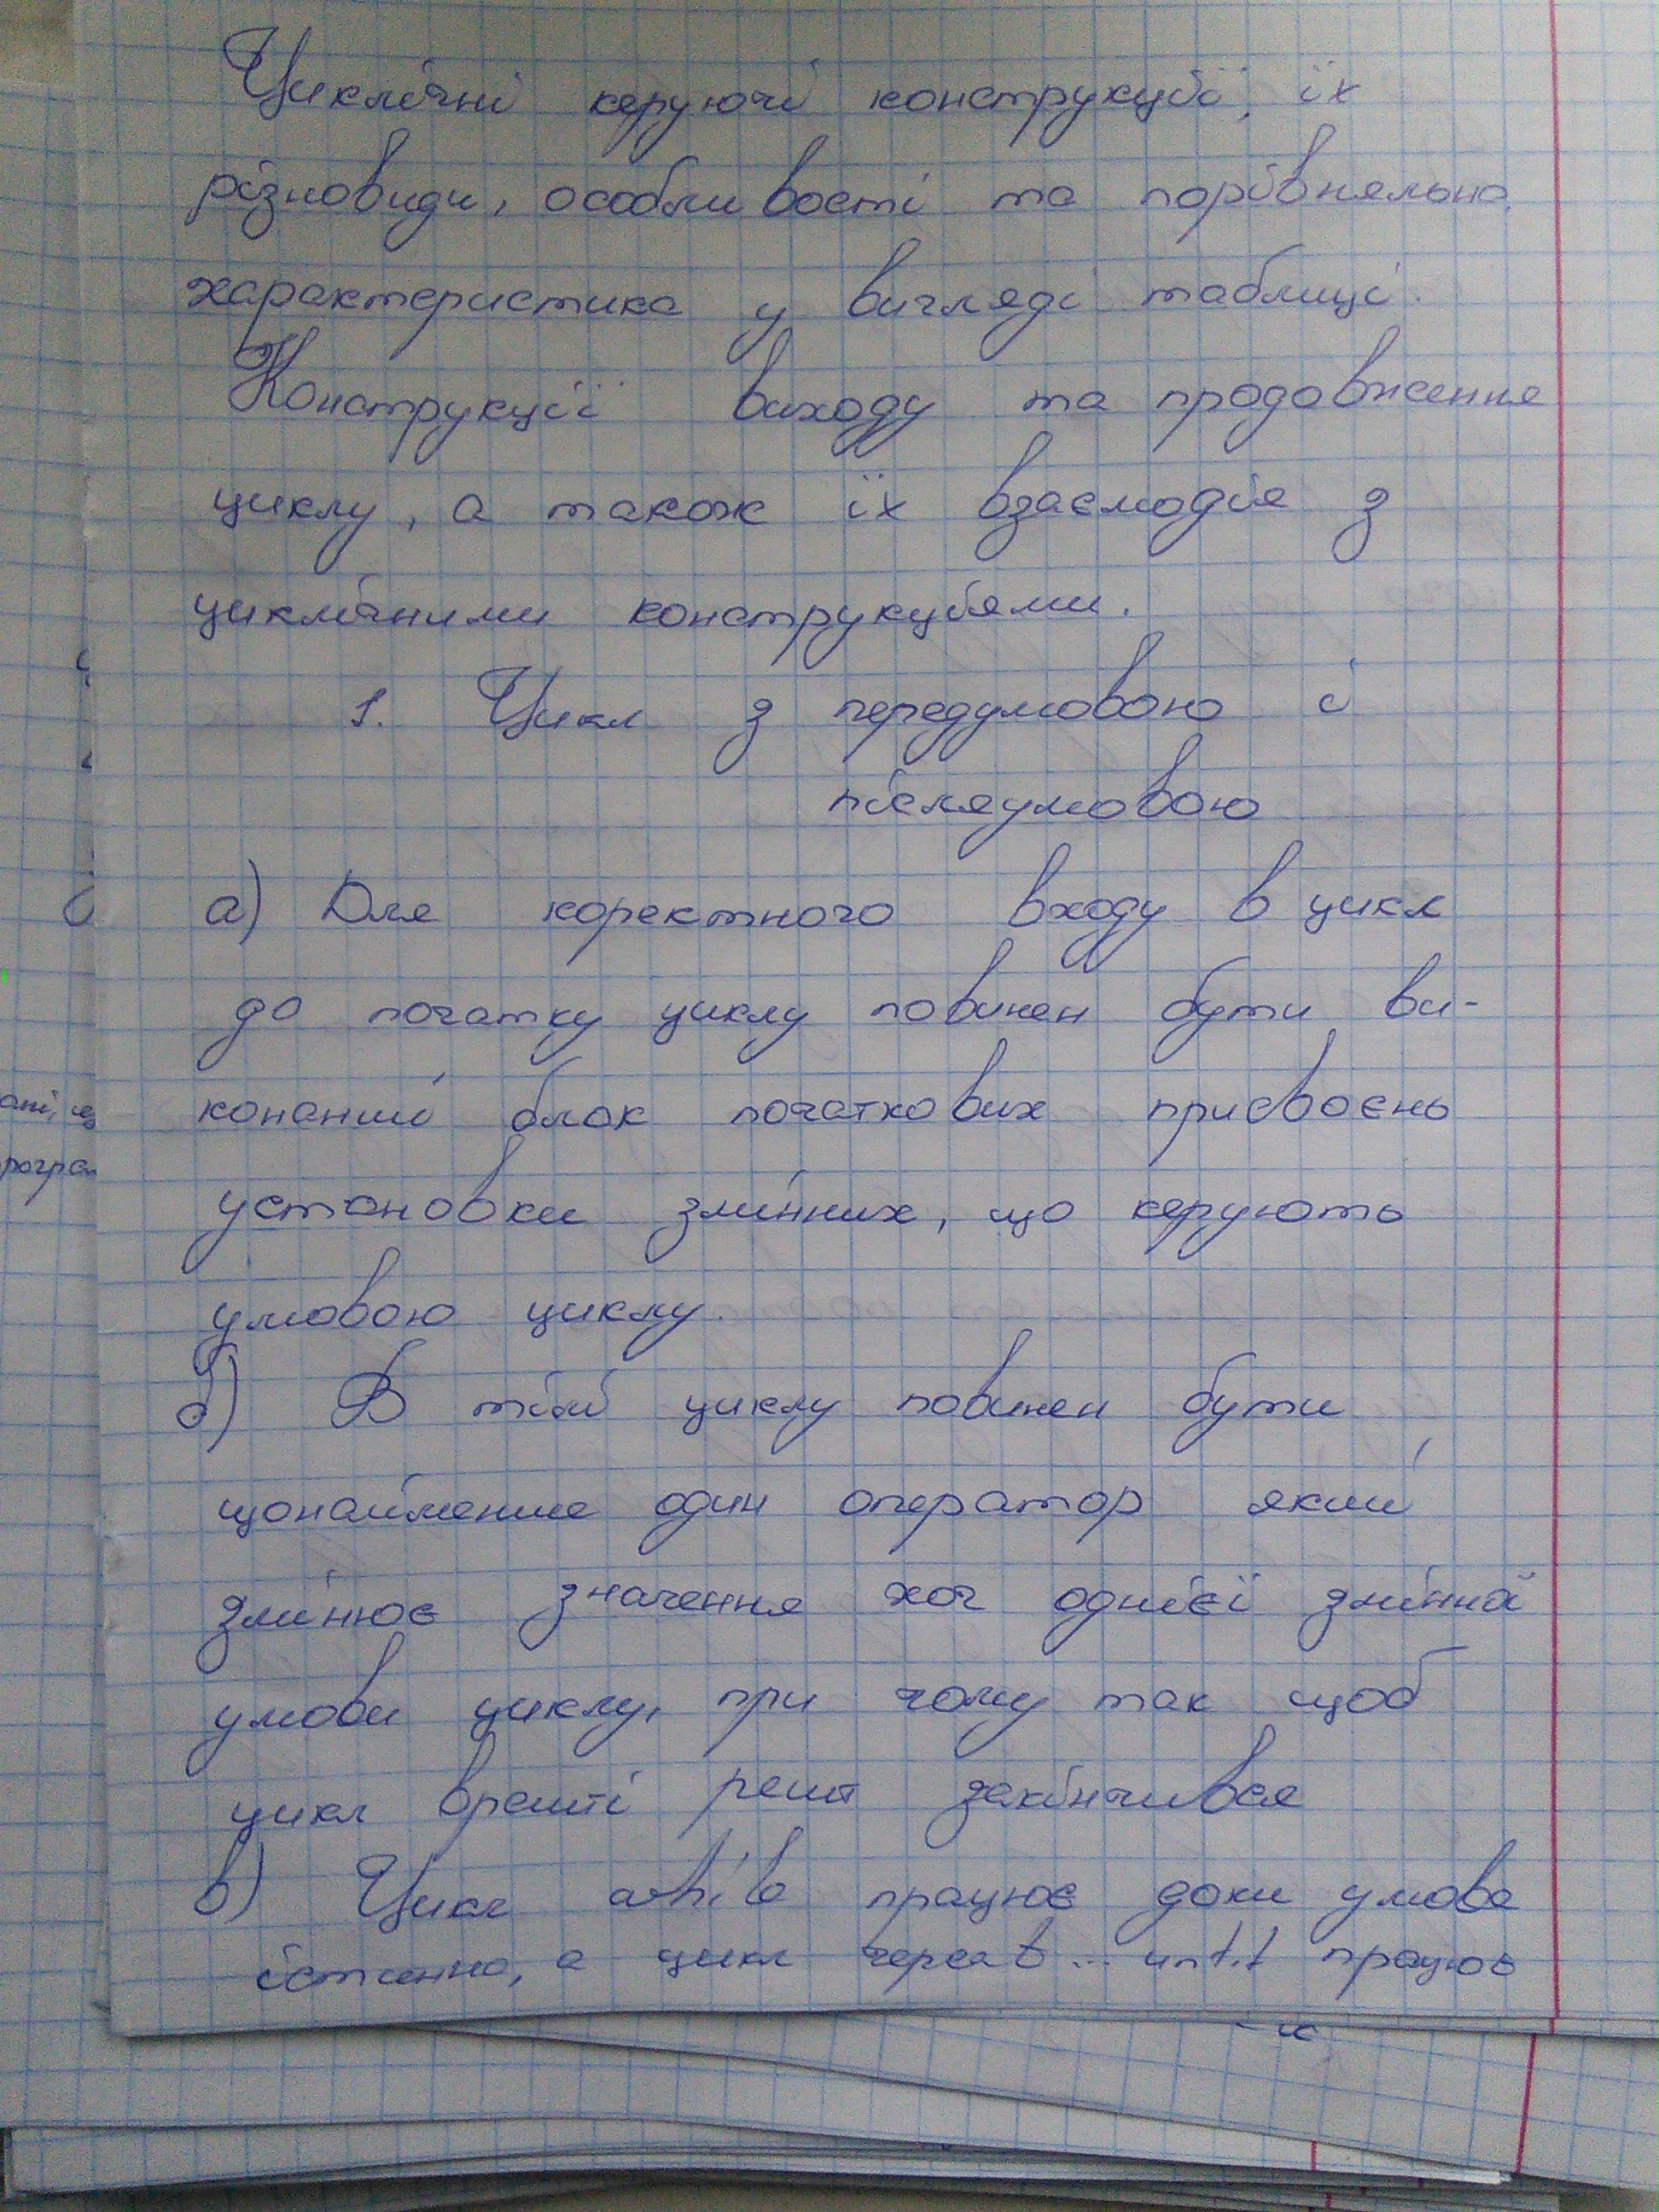 Циклічні керуючі конструкції, їх
різновиди, особливості та порівняльна
характеристика у вигляді таблиці.
Конструкції виходу та продовження
циклу, а також їх взаємодія з
циклічними конструкціями.
1. Цикл з передумовою і
післяумовою
а) Для коректного входу в цикл
до початку циклу повинен бути ви-
конаний блок початкових присвоєнь
установки змінних, що керують
умовою циклу.
б) В тілі циклу повинен бути
щонайменше один оператор який
змінює значення хоч однієї змінної
умови циклу, при чому так щоб
цикл врешті решт закінчився
в) Цикл while працює доки умова
істинна, а цикл repeat... until працює